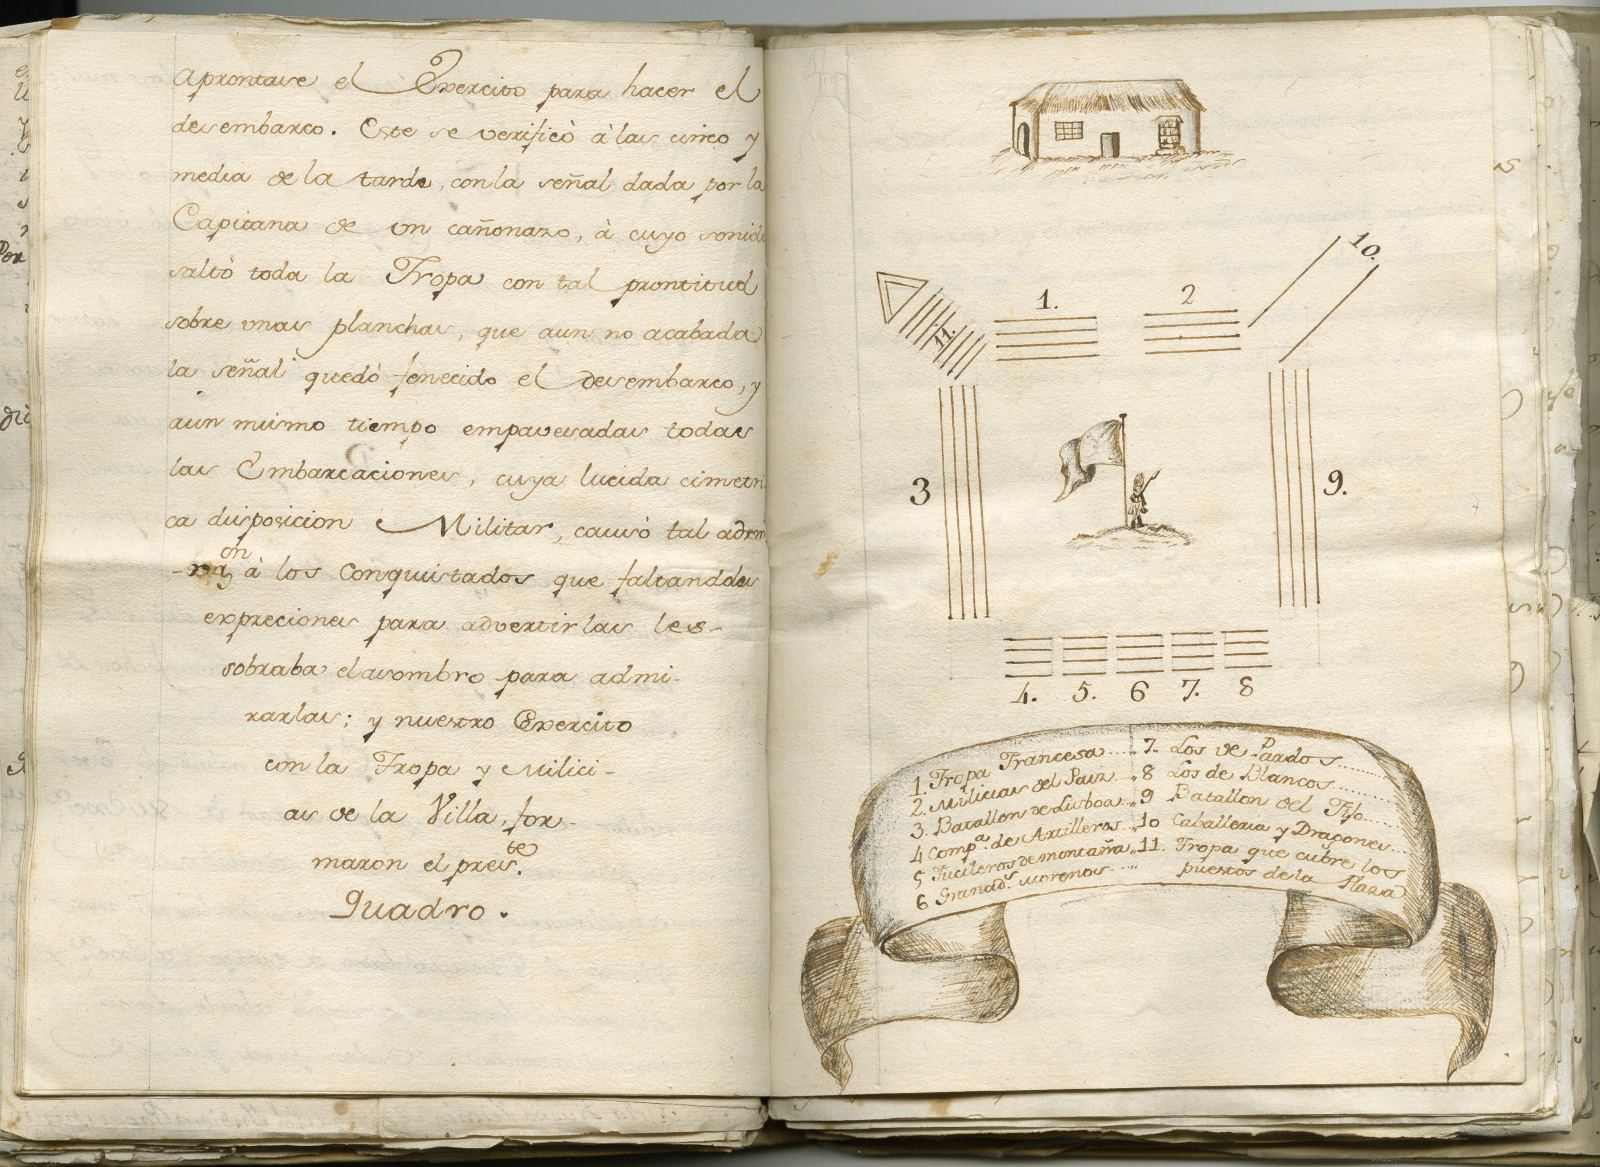 aprontase el Exercito para hacer el
desembarco. Este se verificò à las cinco y
media de la tarde, con la señal dada por la
Capitana de un cañonazo, à cuyo sonido
saltò toda la Tropa con tal prontitud
sobre unas planchas, que aun no acabada
la señal quedò fenecido el desembarco, y
aun mismo tiempo empavesadas todas
las Embarcaciones, cuya lucida cimetri
ca disposicion Militar, causò tal admi
-raçⁿ à los Conquistados que faltandoles
expreciones para advertirlas les-
sobraba el asombro para admi-
rarlas; y nuestro Exercito
con la Tropa y Milici-
as de la Villa, for-
maron el presᵗᵉ.
Quadro.
10.
1.
2
11.
3
9.
4. 5. 6 7. 8
1. Tropa Francesa 7. Los de Pardos
2. Milicias del Paiz 8 Los de Blancos
3. Batallon de Lisboa 9 Batallon del Fijo
4 Compᵃ. de Artilleros 10 Caballeria y Dragones
5 Fucileros de montaña 11. Tropa que cubre los
6 Granadˢ. Morenos puestos de la Plaza